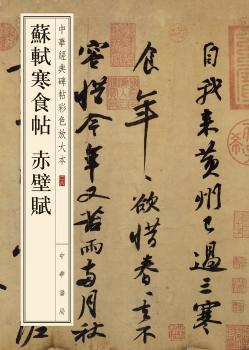 蘇軾寒食帖 赤壁賦
中華經典碑帖彩色放大本
中華書局
自我來黃州已過三寒
食年〻欲惜春〻去不
容惜今年又苦雨兩月秋